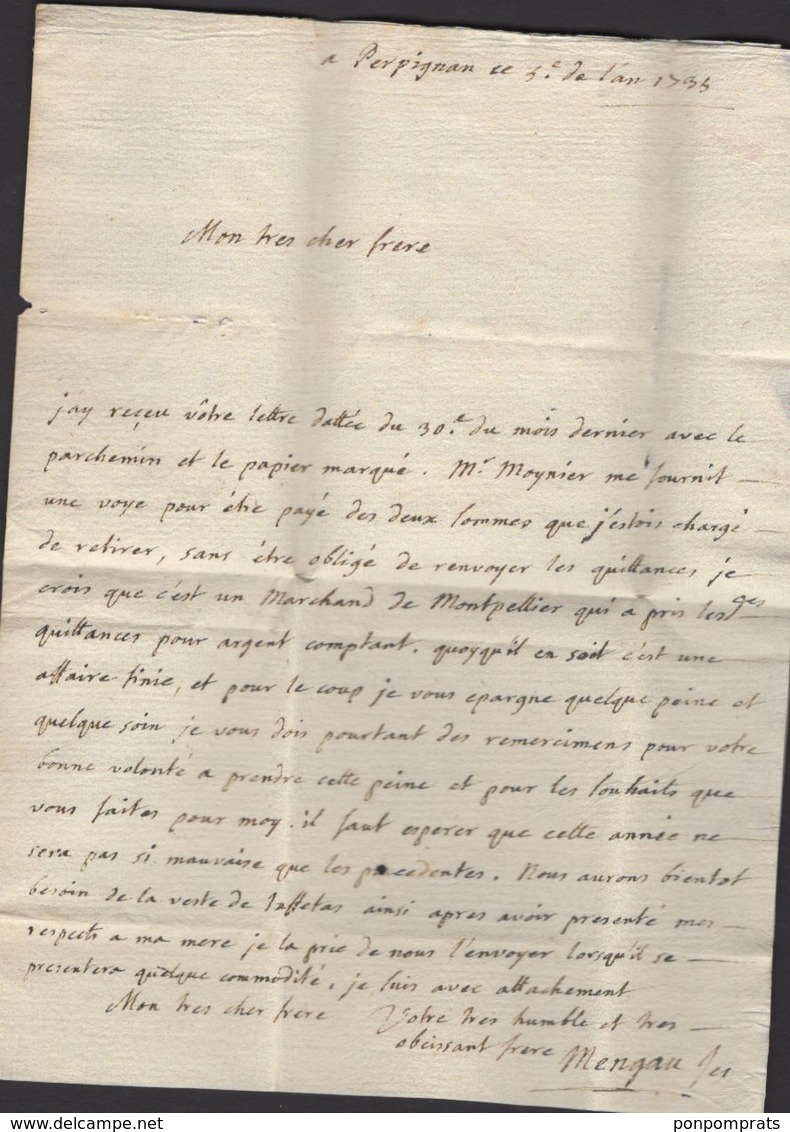 a Perpignan ce 5.e de l'an 1735
Mon tres cher frere
j'ay reçeu vôtre lettre dattée du 30.e du mois dernier avec le
parchemin et le papier marqué. Mr Moynier me fournit
une voye pour être payé des deux sommes que j'estois chargé
de retirer, sans être obligé de renvoyer les quittances je
crois que c'est un Marchand de Montpellier qui a pris lesdes
quittances pour argent comptant. quoyqu'il en soit c'est une
affaire finie, et pour le coup je vous epargne quelque peine et
quelque soin je vous dois pourtant des remercimens pour votre
bonne volonté a prendre cette peine et pour les souhaits que
vous faites pour moy. il faut esperer que cette année ne
sera pas si mauvaise que les precedentes. Nous aurons bientot
besoin de la veste de taffetas ainsi apres avoir presenté mes
respects a ma mere je la prie de nous l'envoyer lorsqu'il se
presentera quelque commodité. je suis avec attachement
Mon tres cher frere Votre tres humble et tres
obeissant frere Mengau Jes
ponpomprats